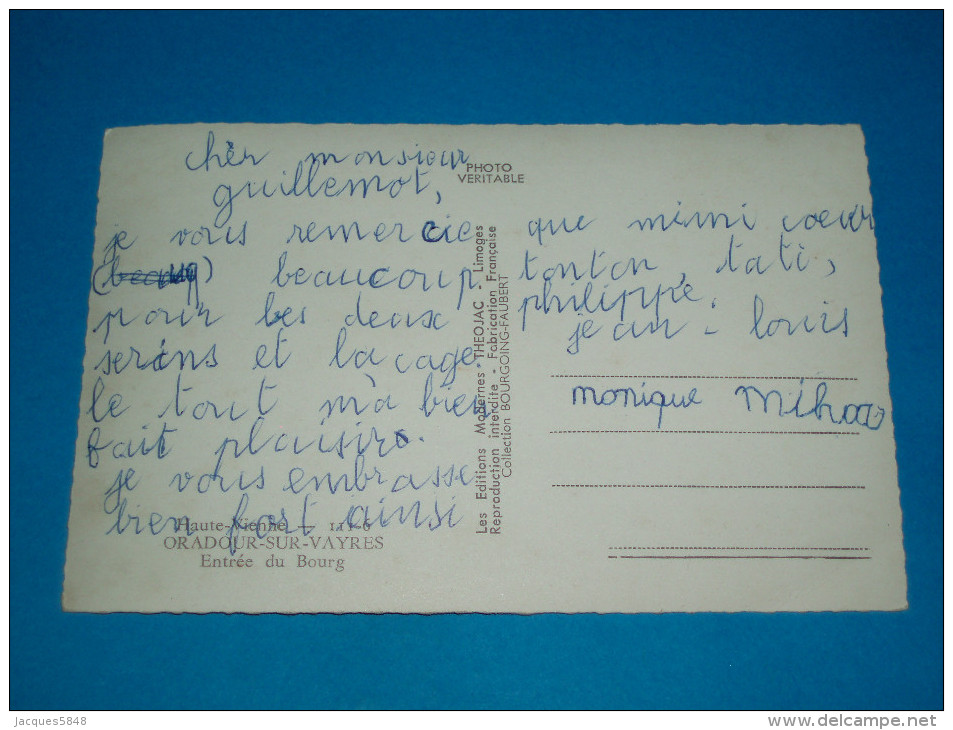 chèr monsieur
guillemot,
je vous remercie
beaucoup
pour les deux
serins et la cage
le tout m'a bien
fait plaisir.
je vous embrasse
bien fort ainsi
Haute-Vienne — 111-6
ORADOUR-SUR-VAYRES
Entrée du Bourg
PHOTO
VERITABLE
Les Editions Modernes "THEOJAC" - Limoges
Reproduction interdite - Fabrication Française
Collection BOURGOING-FAUBERT
que mimi coeur
tonton, tati,
philippe.
jean - louis
monique
Jacques5848
delcampe.net